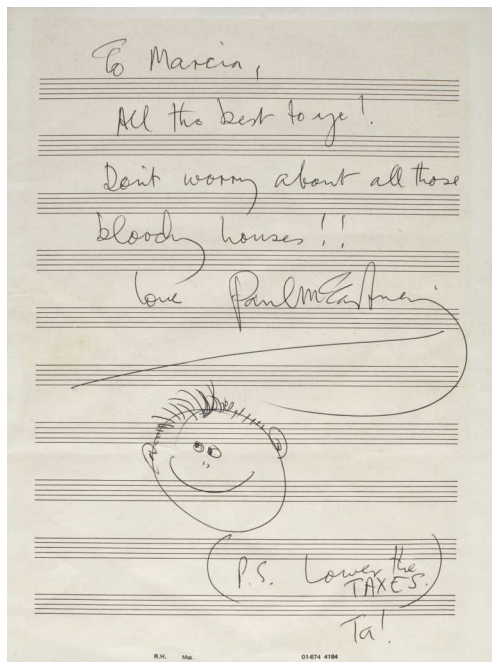 To Marcia,
All the best to ye!
Don't worry about all those
bloody houses!!
love Paul McCartney
(P.S. Lower the
TAXES.)
Ta!
R.H. Mus.
01-674 4184